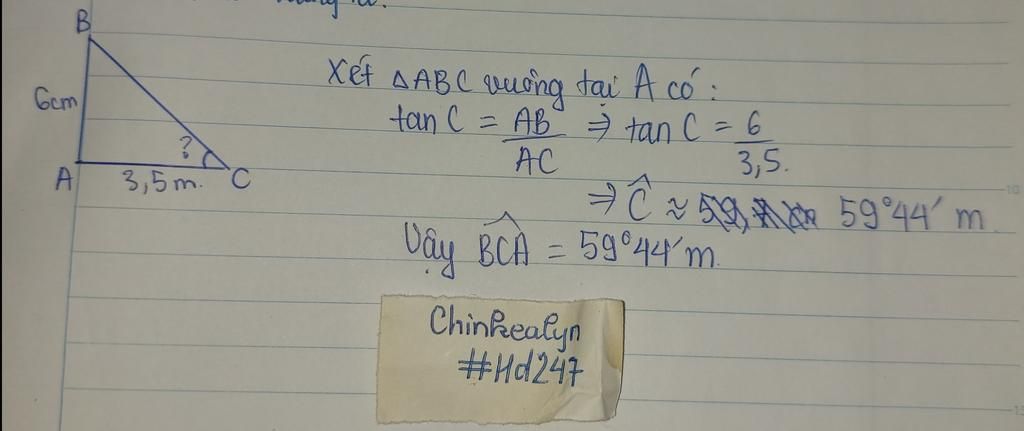 B
6cm
A
3,5m.
?
C
Xét △ABC vuông tại A có:
tan C = AB/AC ⇒ tan C = 6/3,5.
⇒ Ĉ ≈ 59°44' m
Vậy BCA = 59°44' m.
Chinkealyn
#Hd247